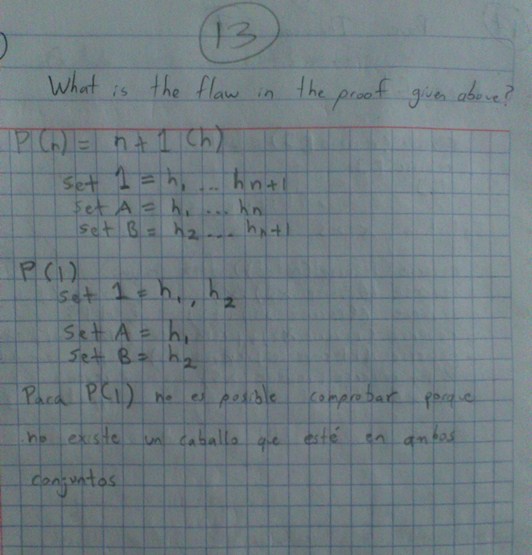 13
What is the flaw in the proof given above?
P(n) = n+1 (h)
set 1 = h₁ ... hn+1
set A = h₁ ... hn
set B = h₂ ... hn+1
P(1)
set 1 = h₁, h₂
set A = h₁
set B = h₂
Para P(1) no es posible comprobar porque
no existe un caballo que esté en ambos
conjuntos